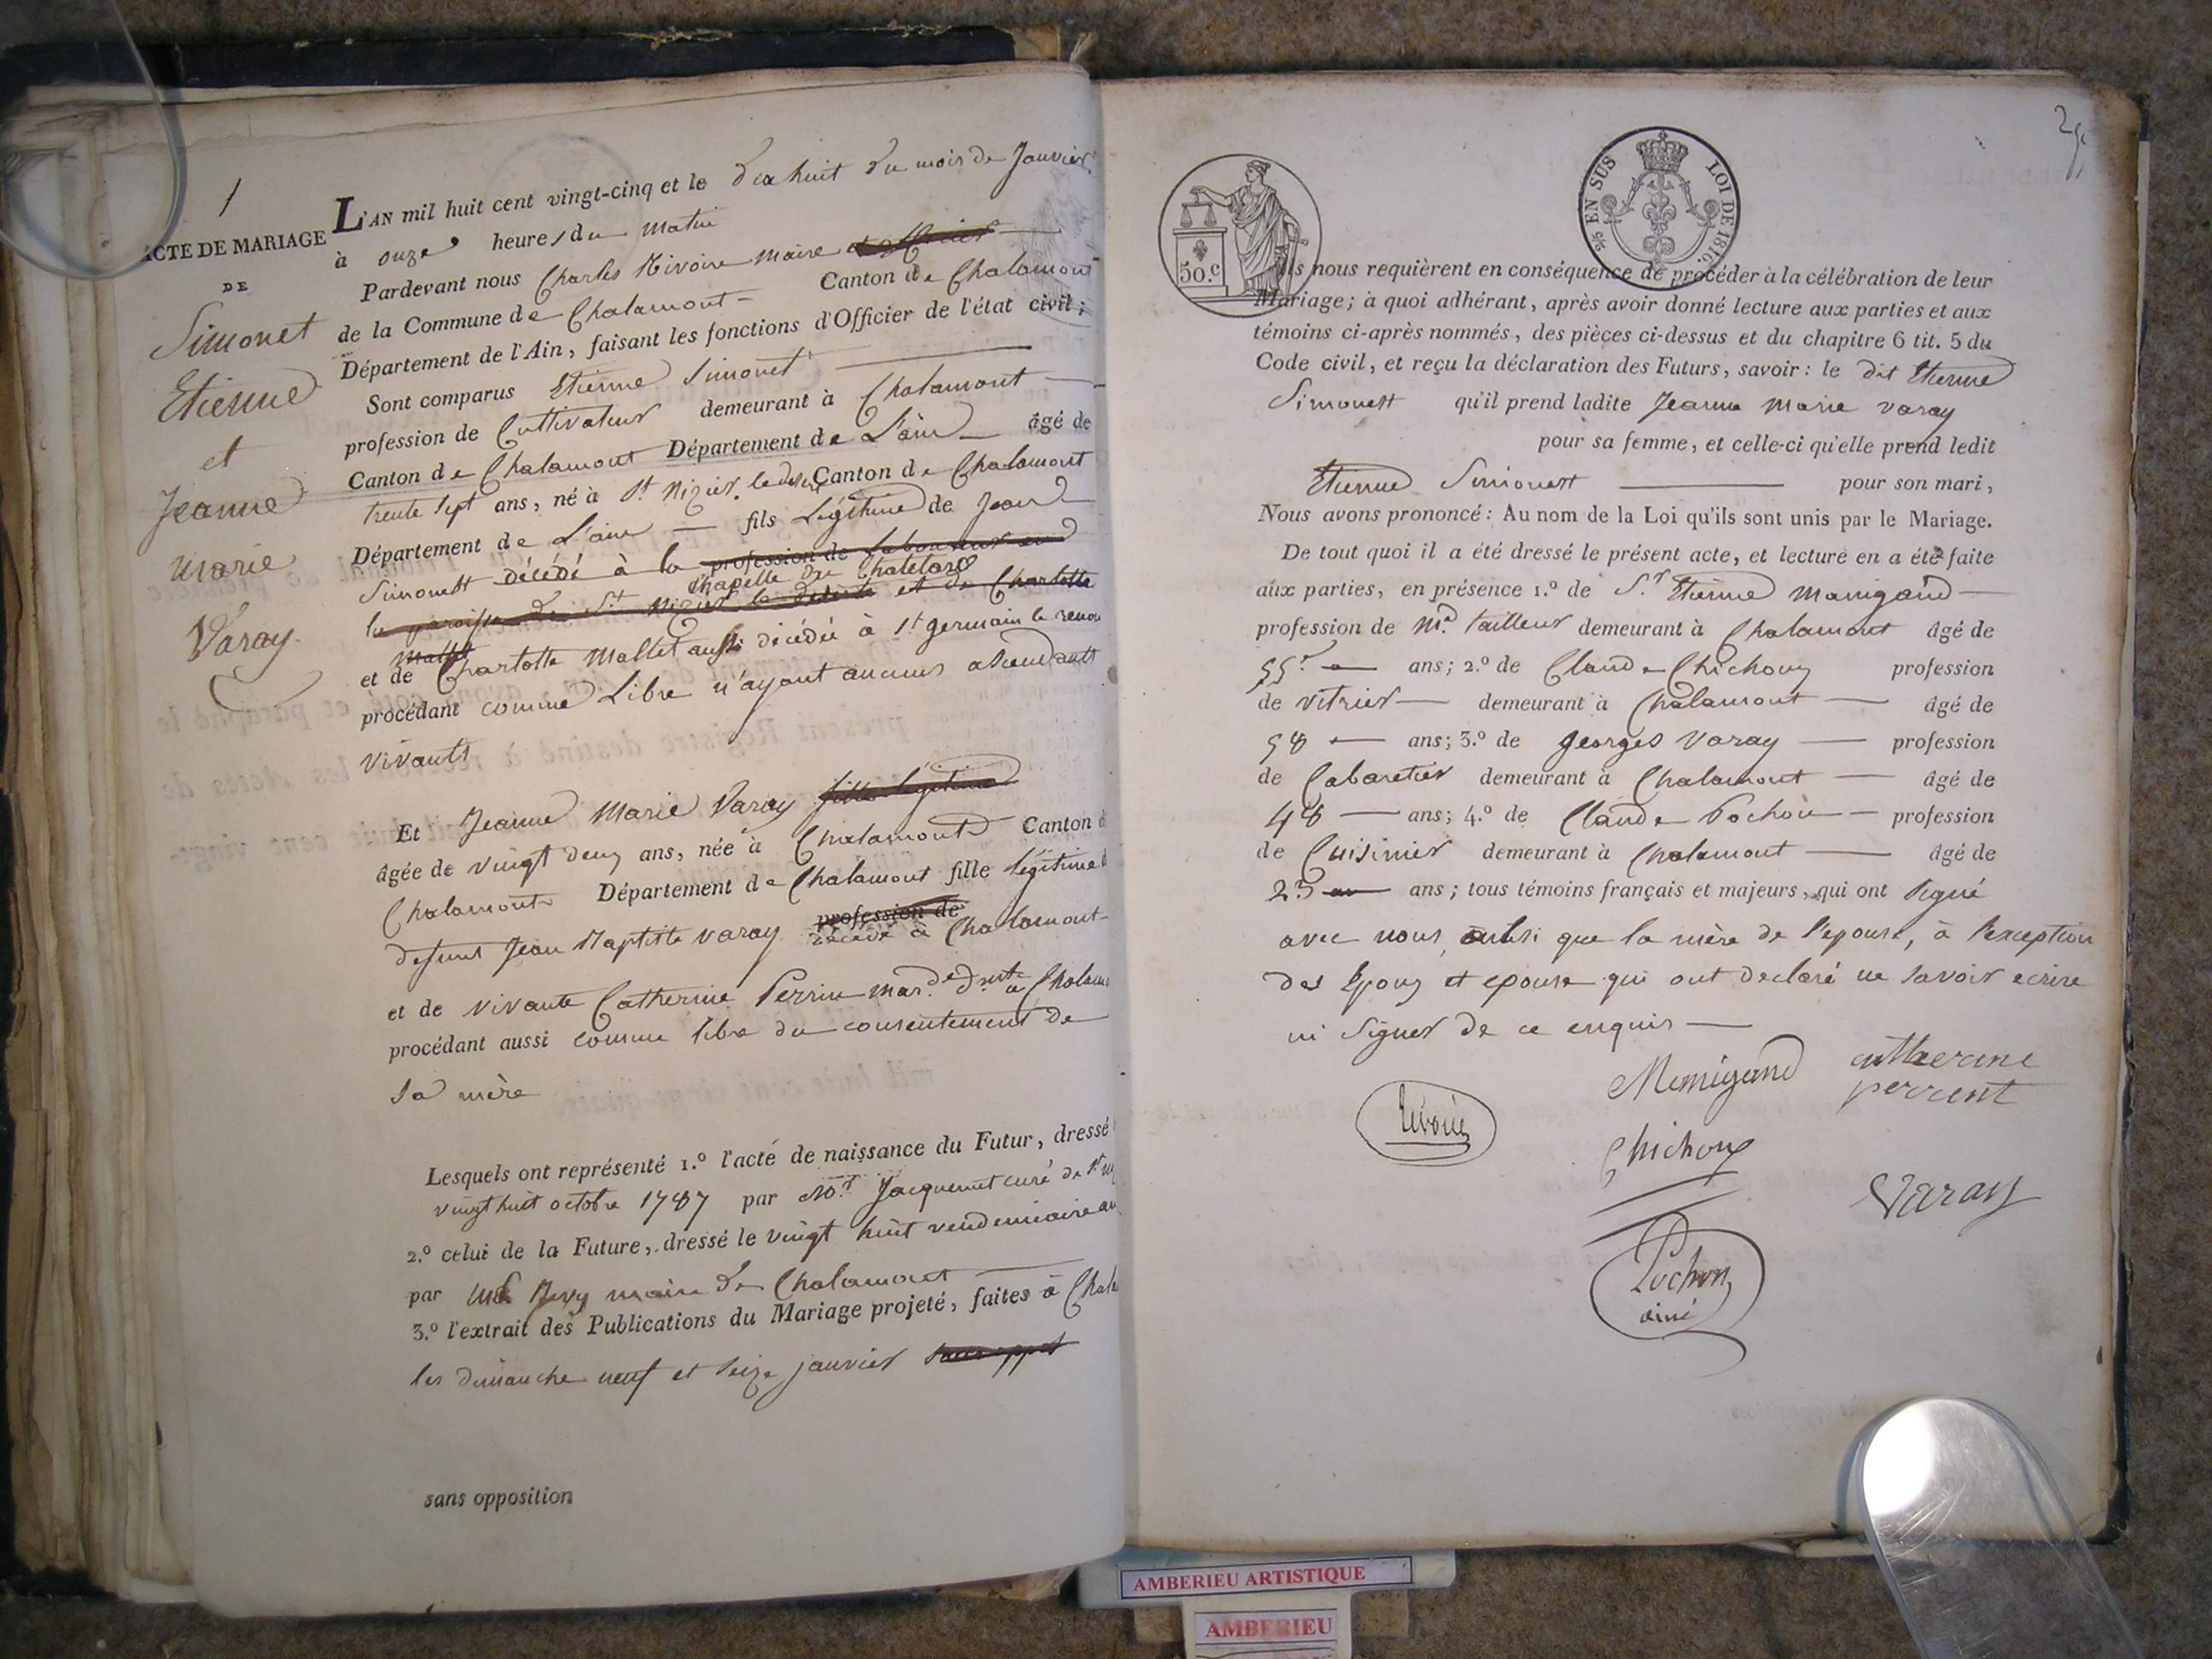 1
ACTE DE MARIAGE
DE
Simonet
Etienne
et
Jeanne
marie
Varay
L'AN mil huit cent vingt-cinq et le dix huit du mois de Janvier
à onze heures du matin
Pardevant nous Charles Rivoire maire
de la Commune de Chalamont Canton de Chalamont
Département de l'Ain, faisant les fonctions d'Officier de l'état civil;
Sont comparus Etienne Simonet
profession de Cultivateur demeurant à Chalamont
Canton de Chalamont Département de L'ain âgé de
trente sept ans, né à St Nizier le desert Canton de Chalamont
Département de L'ain fils Légitime de Jean
Simonet décédé à la profession de Laboureur
Chapelle du Chatelard
la paroisse de St Nizier le desert et de Charlotte
Mallet
et de Charlotte Mallet aussi décédée à St germain le renon
procédant comme Libre n'ayant aucuns ascendants
vivants
Et Jeanne Marie Varay fille légitime
âgée de vingt deux ans, née à Chalamont Canton d
Chalamont Département de Chalamont fille légitime d
defunt Jean Baptiste varay profession de
décédé à Chalamont
et de vivante Catherine Perrin mar.de d.nte à Chalam
procédant aussi comme libre du consentement de
sa mère
Lesquels ont représenté 1.º l'acte de naissance du Futur, dressé
vingt huit octobre 1787 par Mr Jacquemet curé de St
2.º celui de la Future, dressé le vingt huit vendemiaire an
par maire de Chalamont
3.º l'extrait des Publications du Mariage projeté, faites à Chala
les dimanche neuf et seize janvier
sans opposition
50.c
EN SUS LOI DE 1816.
Ils nous requièrent en conséquence de procéder à la célébration de leur
Mariage; à quoi adhérant, après avoir donné lecture aux parties et aux
témoins ci-après nommés, des pièces ci-dessus et du chapitre 6 tit. 5 du
Code civil, et reçu la déclaration des Futurs, savoir: le dit Etienne
Simonet qu'il prend ladite Jeanne Marie varay
pour sa femme, et celle-ci qu'elle prend ledit
Etienne Simonet pour son mari,
Nous avons prononcé: Au nom de la Loi qu'ils sont unis par le Mariage.
De tout quoi il a été dressé le présent acte, et lecture en a été faite
aux parties, en présence 1.º de S.r Etienne Manigand
profession de M.d tailleur demeurant à Chalamont âgé de
55 ans; 2.º de Claude Chichoux profession
de vitrier demeurant à Chalamont âgé de
58 ans; 3.º de georges Varay profession
de Cabaretier demeurant à Chalamont âgé de
48 ans; 4.º de Claude Pochon profession
de Cuisinier demeurant à Chalamont âgé de
23 ans; tous témoins français et majeurs, qui ont signé
avec nous ainsi que la mère de l'epouse, à l'exception
des Epoux et epouse qui ont declaré ne savoir ecrire
ni signer de ce enquis
Manigand catherine
perrent
Rivoire
Chichoux
Varay
Pochon
ainé
AMBERIEU ARTISTIQUE
AMBERIEU